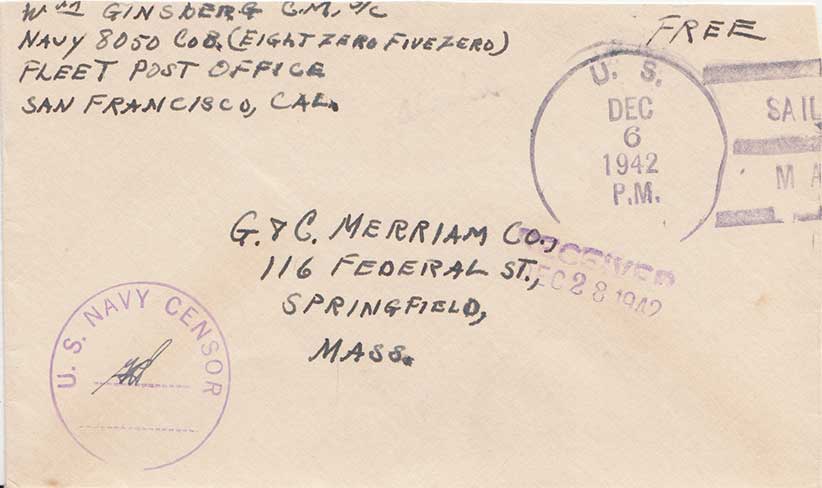 Wm GINSBERG C.M. 3/C
NAVY 8050 COB. (EIGHT ZERO FIVE ZERO)
FLEET POST OFFICE
SAN FRANCISCO, CAL.
FREE
U. S.
DEC
6
1942
P.M.
SAIL
MA
G. & C. MERRIAM CO.,
116 FEDERAL ST.,
SPRINGFIELD,
MASS.
RECEIVED
DEC 28 1942
U. S. NAVY CENSOR